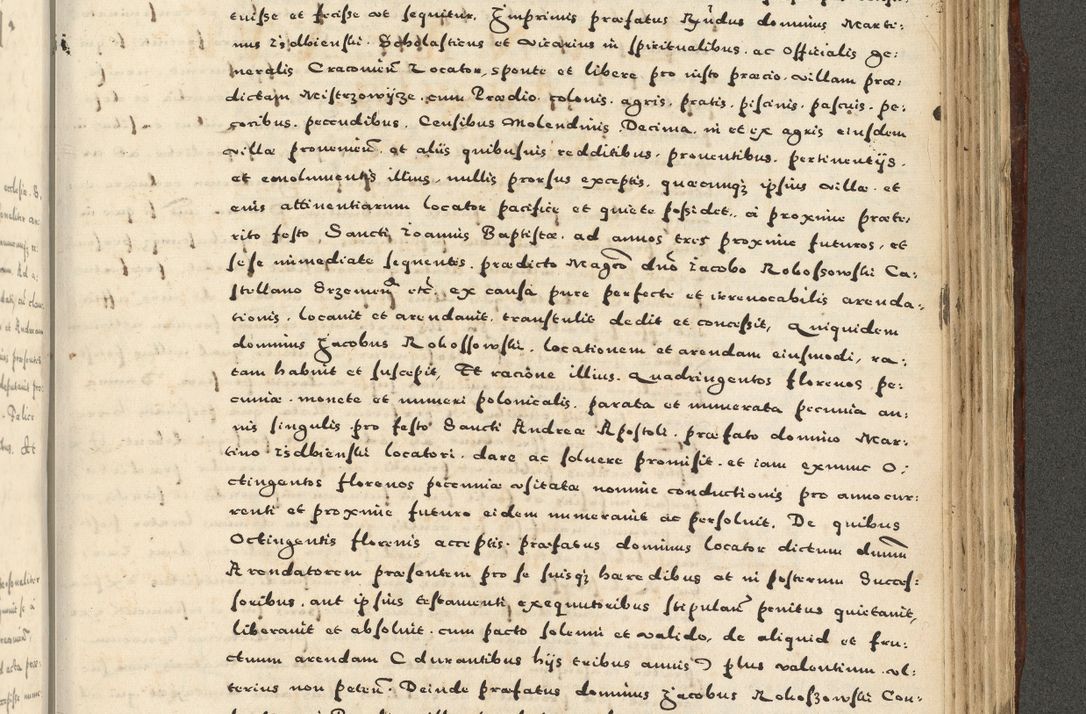 tuisse et fecisse ut sequitur. Imprimis præfatus Rṇdus dominus Marti:
nus Izdbienski. Scholasticus et vicarius in spiritualibus. ac Officialis ge:
neralis Cracovien̄ Locator, sponte et libere pro iusto præcio. villam præ:
dictam Mistrzowijze. cum Prædio. colonis. agris. pratis. piscinis. pascuis. pe:
coribus. pecudibus. Censibus Molendinis. Decima. in et ex agris eiusdem
villæ provenien̄. et aliis quibusvis redditibus. proventibus. pertinentijs.
et emolumentis illius, nullis prorsus exceptis. quæcunq₃ ipsius villæ. et
eius attinentiarum locator pacifice et quiete possidet. á proxime præte:
rito festo Sancti Ioannis Baptistæ. ad annos tres proxime futuros, et
sese immediate sequentes. prædicto Magco dno Iacobo Rokossowski Ca:
stellano Srzemen̄ etc. ex causa pure perfecte et irrevocabilis arenda:
tionis. locavit et arendavit. transtulit dedit et concessit, Quiquidem
dominus Iacobus Rokossowski. locationem et arendam eiusmodi, ra:
tam habuit et suscepit, Et racione illius. Quadringentos florenos pe:
cuniæ. monete et numeri polonicalis. parata et numerata pecunia an:
nis singulis. pro festo Sancti Andreæ Apostoli. præfato domino Mar:
tino Izdbienski locatori. dare ac solvere promisit. et iam exnunc O:
ctingentos florenos pecuniæ usitatæ nomine conductionis pro anno cur:
renti et proxime futuro eidem numeravit ac persolvit. De quibus
Octingentis florenis acceptis. præfatus dominus locator dictum dnum
Arendatorem præsentem pro se suisq₃ hæredibus et in posterum Succes:
soribus. aut ipsius testamenti exequutoribus stipulan̄ penitus quietavit,
liberavit et absolvit. cum pacto solemni et valido, de aliquid et fru:
ctuum arendam C durantibus hijs tribus annis Ɔ plus valentium. ul:
terius non peten̄. Deinde præfatus dominus Iacobus Rokoszowski Con: